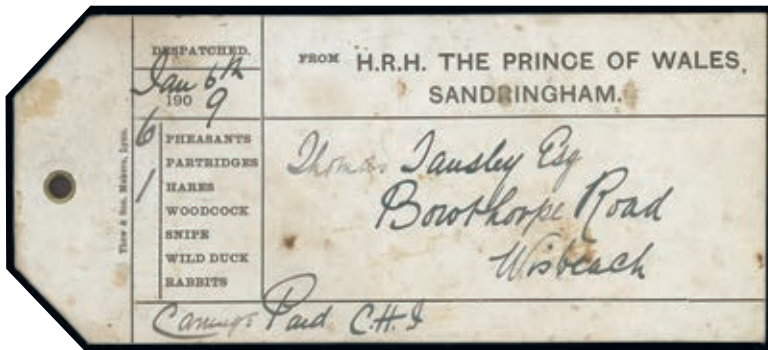 DESPATCHED.
Jan 6th
190 9
FROM H.R.H. THE PRINCE OF WALES,
SANDRINGHAM.
6 PHEASANTS
PARTRIDGES
1 HARES
WOODCOCK
SNIPE
WILD DUCK
RABBITS
Thomas Tansley Esq
Bowthorpe Road
Wisbeach
Carriage Paid C.H.I
Thew & Son, Makers, Lynn.